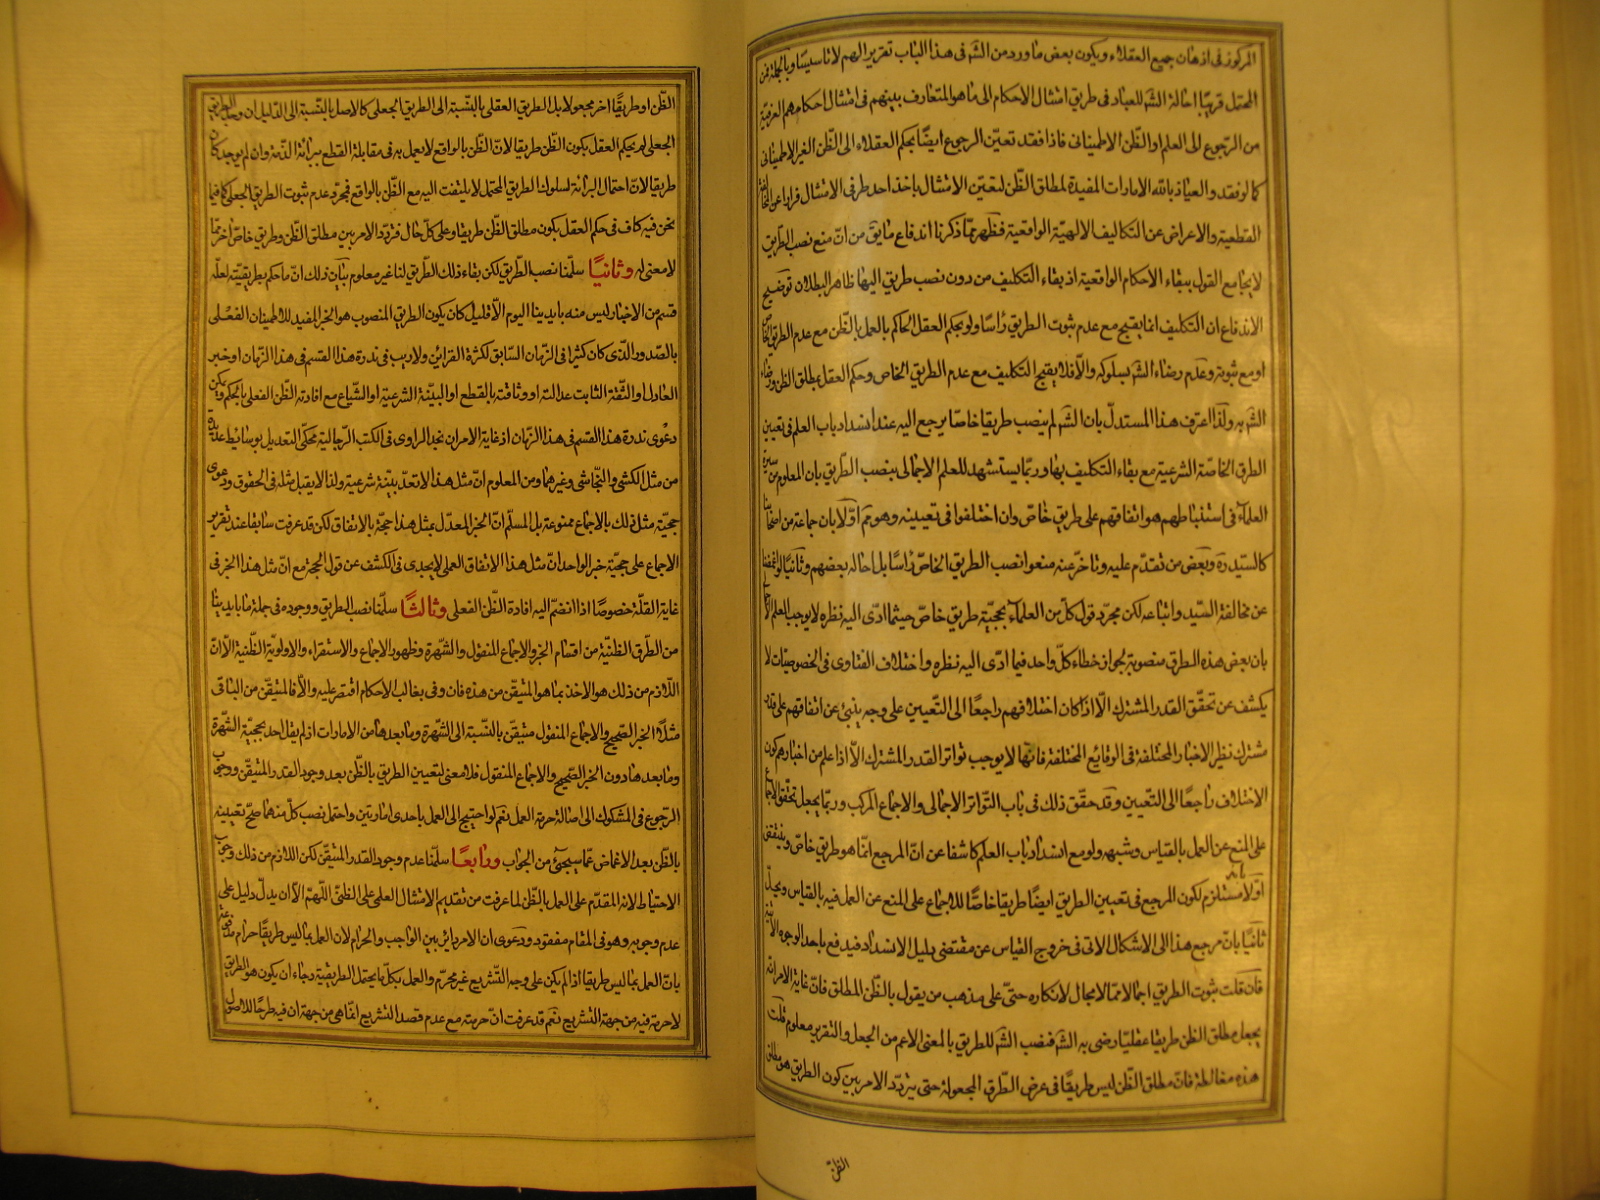 المركوز فى اذهان جميع العقلاء ويكون بعض ما ورد من الشه فى هذا الباب تقريرا لهم لا تاسيسا وبالجملة فمن
المحتمل قريبا احالة الشه للعباد فى طريق امتثال الاحكام الى ما هو المتعارف بينهم فى امتثال احكامهم العرفية
من الرجوع الى العلم او الظن الاطمينانى فاذا فقد تعين الرجوع ايضا بحكم العقلاء الى الظن الغير الاطمينانى
كما لو فقد والعياذ بالله الامارات المفيدة لمطلق الظن لتعين الامتثال باخذ احد طرفى الامتثال فرارا عن المخالفة
القطعية والاعراض عن التكاليف الالهية الواقعية فظهر مما ذكرنا اندفاع ما يق من ان منع نصب الطريق
لا يجامع القول ببقاء الاحكام الواقعية اذ بقاء التكليف من دون نصب طريق اليها ظاهر البطلان توضيح
الاندفاع ان التكليف انما يقبح مع عدم ثبوت الطريق راسا ولو بحكم العقل الحاكم بالعمل بالظن مع عدم الطريق الخاص
او مع ثبوته وعدم رضاء الشه بسلوكه والا فلا يقبح التكليف مع عدم الطريق الخاص وحكم العقل بمطلق الظن ورضاء
الشه به ولذا اعترف هذا المستدل بان الشه لم ينصب طريقا خاصا يرجع اليه عند انسداد باب العلم فى تعيين
الطرق الخاصة الشرعية مع بقاء التكليف بها وربما يستشهد للعلم الاجمالى بنصب الطريق بان المعلوم من سيرة
العلماء فى استنباطهم هو اتفاقهم على طريق خاص وان اختلفوا فى تعيينه وهو مم اولا بان جماعة من اصحابنا
كالسيد ره وبعض من تقدم عليه وتاخر عنه منعوا نصب الطريق الخاص راسا بل احاله بعضهم وثانيا لو اغمضنا
عن مخالفة السيد واتباعه لكن مجرد قول كل من العلماء بحجية طريق خاص حيثما ادى اليه نظره لا يوجب العلم الاجمالى
بان بعض هذه الطرق منصوبة لجواز خطاء كل واحد فيما ادى اليه نظره واختلاف الفتاوى فى الخصوصيات لا
يكشف عن تحقق القدر المشترك الا اذا كان اختلافهم راجعا الى التعيين على وجه ينبئ عن اتفاقهم على قدر
مشترك نظير الاخبار المختلفة فى الوقايع المختلفة فانها لا يوجب تواتر القدر المشترك الا اذا علم من اخبارهم كون
الاختلاف راجعا الى التعيين وقد حقق ذلك فى باب التواتر الاجمالى والاجماع المركب وربما يجعل تحقق الاجماع
على المنع عن العمل بالقياس وشبهه ولو مع انسداد باب العلم كاشفا عن ان المرجع انما هو طريق خاص وينتقض
اولا بانه مستلزم لكون المرجع فى تعيين الطريق ايضا طريقا خاصا للاجماع على المنع عن العمل فيه بالقياس ويحل
ثانيا بان مرجع هذا الى الاشكال الاتى فى خروج القياس عن مقتضى دليل الانسداد فيدفع باحد الوجوه الاتية
فان قلت ثبوت الطريق اجمالا مما لا مجال لانكاره حتى على مذهب من يقول بالظن المطلق فان غاية الامر انه
يجعل مطلق الظن طريقا عقليا رضى به الشه فنصب الشه للطريق بالمعنى الاعم من الجعل والتقرير معلوم قلت
هذه مغالطة فان مطلق الظن ليس طريقا فى عرض الطرق المجعولة حتى يتردد الامر بين كون الطريق هو مطلق
الظن
الظن او طريقا اخر مجعولا بل الطريق العقلى بالنسبة الى الطريق الجعلى كالاصل بالنسبة الى الدليل ان وجد الطريق
الجعلى لم يحكم العقل بكون الظن طريقا لان الظن بالواقع لا يعمل به فى مقابلة القطع ببرائة الذمة وان لم يوجد كان
طريقا لان احتمال البرائة لسلوك الطريق المحتمل لا يلتفت اليه مع الظن بالواقع فمجرد عدم ثبوت الطريق الجعلى كما فيما
نحن فيه كاف فى حكم العقل بكون مطلق الظن طريقا وعلى كل حال فتردد الامر بين مطلق الظن وطريق خاص اخر مما
لا معنى له وثانيا سلمنا نصب الطريق لكن بقاء ذلك الطريق لنا غير معلوم بيان ذلك ان ما حكم بطريقيته لعله
قسم من الاخبار ليس منه بايدينا اليوم الا قليل كان يكون الطريق المنصوب هو الخبر المفيد للاطمينان الفعلى
بالصدور الذى كان كثيرا فى الزمان السابق لكثرة القرائن ولا ريب فى ندرة هذا القسم فى هذا الزمان او خبر
العادل او الثقة الثابت عدالته او وثاقته بالقطع او البينة الشرعية او الشياع مع افادته الظن الفعلى بالحكم ويمكن
دعوى ندرة هذا القسم فى هذا الزمان اذ غاية الامر ان نجد الراوى فى الكتب الرجالية محكى التعديل بوسائط عديدة
من مثل الكشى والنجاشى وغيرهما ومن المعلوم ان مثل هذا لا تعد بينة شرعية ولذا لا يقبل مثله فى الحقوق ودعوى
حجية مثل ذلك بالاجماع ممنوعة بل المسلم ان الخبر المعدل بمثل هذا حجة بالاتفاق لكن قد عرفت سابقا عند تقرير
الاجماع على حجية خبر الواحد ان مثل هذا الاتفاق العملى لا يجدى فى الكشف عن قول الحجة مع ان مثل هذا الخبر فى
غاية القلة خصوصا اذا انضم اليه افادة الظن الفعلى وثالثا سلمنا نصب الطريق ووجوده فى جملة ما بايدينا
من الطرق الظنية من اقسام الخبر والاجماع المنقول والشهرة وظهور الاجماع والاستقراء والاولوية الظنية الا ان
اللازم من ذلك هو الاخذ بما هو المتيقن من هذه فان وفى بغالب الاحكام اقتصر عليه والا فالمتيقن من الباقى
مثلا الخبر الصحيح والاجماع المنقول متيقن بالنسبة الى الشهرة وما بعدها من الامارات اذ لم يقل احد بحجية الشهرة
وما بعدها دون الخبر الصحيح والاجماع المنقول فلا معنى لتعيين الطريق بالظن بعد وجود القدر المتيقن ووجوب
الرجوع فى المشكوك الى اصالة حرمة العمل نعم لو احتيج الى العمل باحدى امارتين واحتمل نصب كل منهما صح تعيينه
بالظن بعد الاغماض عما سيجئ من الجواب ورابعا سلمنا عدم وجود القدر المتيقن لكن اللازم من ذلك وجوب
الاحتياط لانه المقدم على العمل بالظن لما عرفت من تقديم الامتثال العلمى على الظنى اللهم الا ان يدل دليل على
عدم وجوبه وهو فى المقام مفقود ودعوى ان الامر دائر بين الواجب والحرام لان العمل بما ليس طريقا حرام مدفوعة
بان العمل بما ليس طريقا اذا لم يكن على وجه التشريع غير محرم والعمل بكل ما يحتمل الطريقية رجاء ان يكون هو الطريق
لا حرمة فيه من جهة التشريع نعم قد عرفت ان حرمته مع عدم قصد التشريع انما هى من جهة ان فيه طرحا للاصول